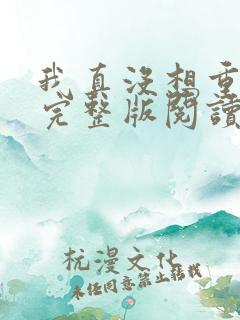 我真没想重
完整版閱讀
杭漫文化
未经同意禁止转载